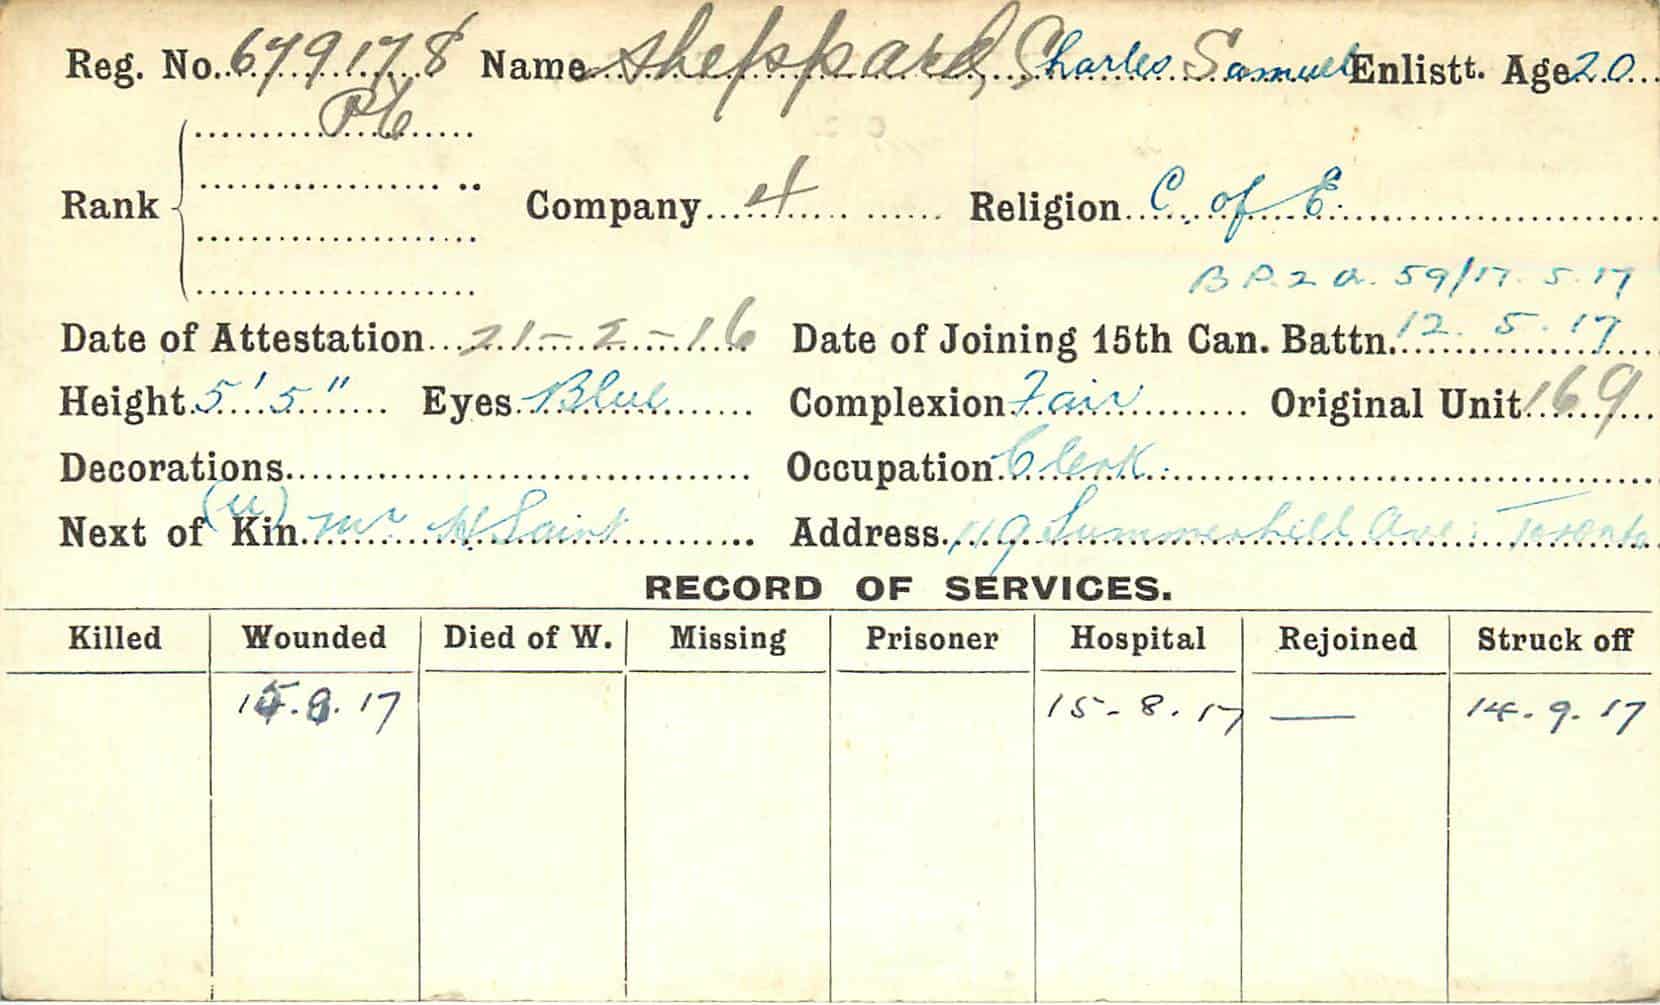 Reg. No. 679178 Name Sheppard, Charles Samuel Enlistt. Age 20
Pte
Rank Company 4 Religion C. of E.
B P. 2 a. 59/17. 5. 17
Date of Attestation 21-2-16 Date of Joining 15th Can. Battn. 12. 5. 17
Height 5' 5" Eyes Blue Complexion Fair Original Unit 169
Decorations Occupation Clerk.
(u)
Next of Kin Mr H Saint Address 119 Summerhill Ave. Toronto
RECORD OF SERVICES.
Killed Wounded Died of W. Missing Prisoner Hospital Rejoined Struck off
15.8.17 15-8.17 — 14.9.17